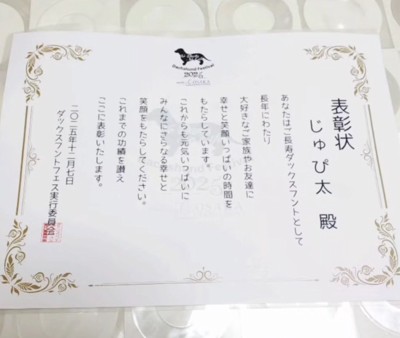 Dachshund Festival
2025
表彰状
じゅぴ太 殿
あなたはご長寿ダックスフントとして
長年にわたり
大好きなご家族やお友達に
幸せと笑顔いっぱいの時間を
もたらしています。
これからも元気いっぱいに
みんなにさらなる幸せと
笑顔をもたらしてください。
これまでの功績を讃え
ここに表彰いたします。
二〇二五年十二月七日
ダックスフントフェス実行委員会